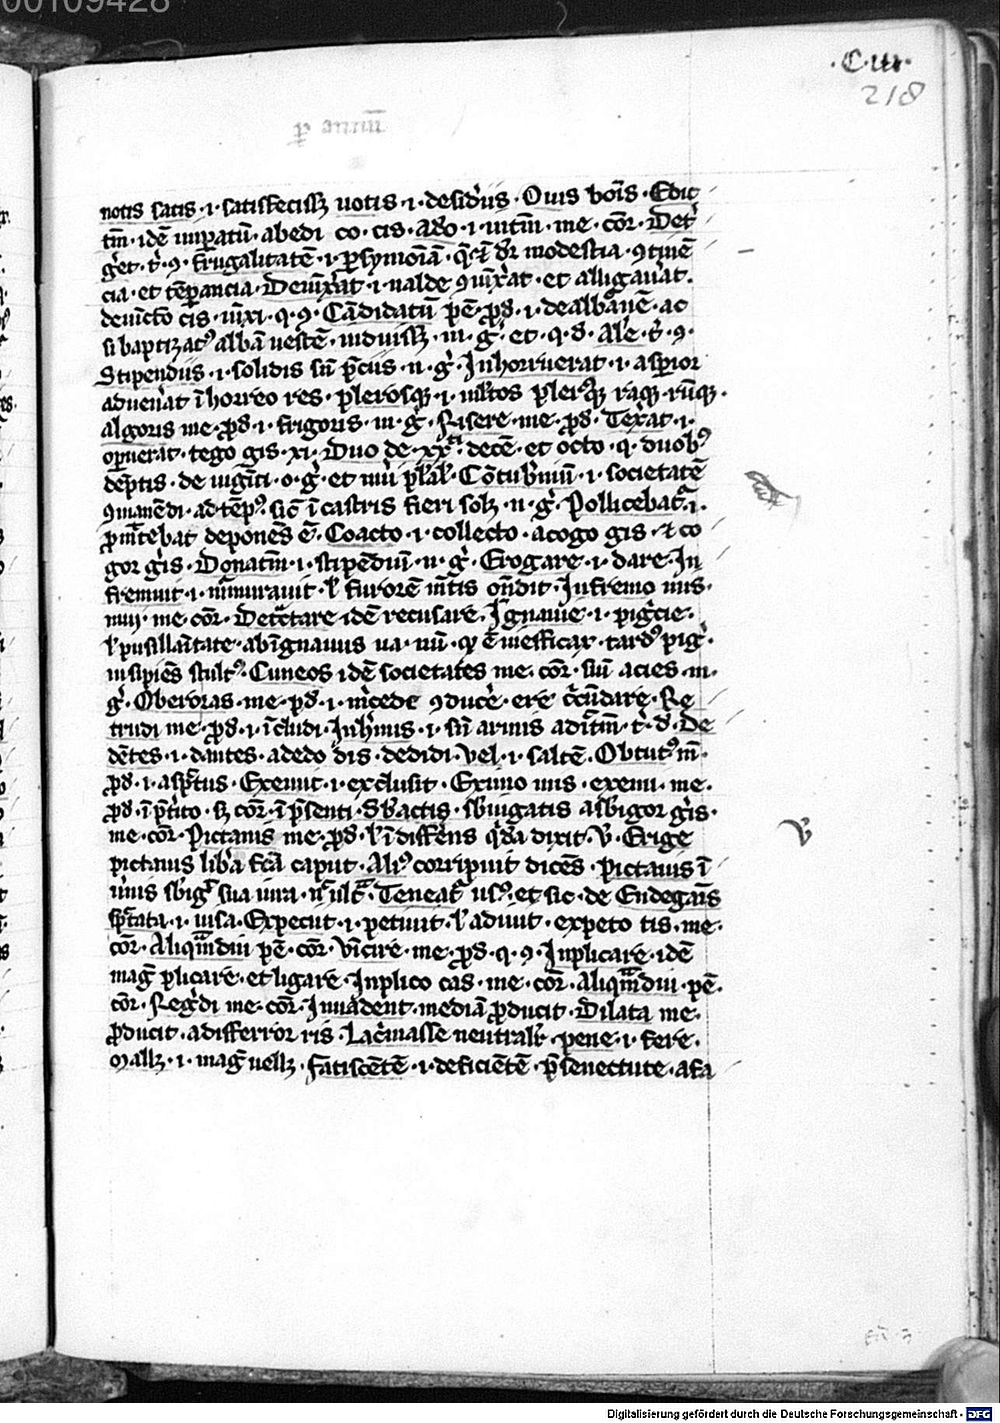 00109428
·C·III·
218
per annuu
notis satis ·i· satisfecissꝫ uotis ·i· desid'iis · Quis vois · Edic
tm̄ · idē imp̄atū · abedi co · cis · Ado · i · uitm̄ · me · cōr · Det'
cia · et tēp̄ancia · Deuix'at · i · ualde ꝯuix'at · et alligauat ·
deuicto cis · uixi · q · ꝯ · Cādidatū pē · ꝓd · i · dealbauē · ac
si baptizat⁹ albā uestē induissꝫ · in · g' · et · q · d · Ale · t' · ꝯ ·
Stipendiis · i · solidis sū p̄ciis · n · g' · Inhorruerat · i · asp̄ior
aduen'at ī horreo res · plerosqꝫ · i · ml'tos pleriqꝫ raqꝫ · rūqꝫ ·
algoris me · ꝓd · i · frigoris · in · g' · Risere · me · ꝓd · Tex'at · i ·
op̄uerat · tego gis · xi · Duo de · xx^ti · decē · et octo · q · duob⁹
dēptis · de uig̅iti · o · g' · et · Cōtub'niū · i · societatē
ꝯmanēdi · ad tēp⁹ · sic̄ ī castris fieri solꝫ · n · g' · Pollicebat^r · i ·
p̄mittebat deponēs ē · Coacto · i · collecto · acogo gis · et co
gor g'is · Donatm̄ · i · stipēdiū · n · g' · Erogare · i · dare · In
fremuit · i · m̄murauit · l' furorē m̄tis on̄dit · Infremo mis ·
mui · me · cōr · Detctare · idē recusare · Ignauie · i · pig'cie ·
l' pusillaītate · ab ignauus ua · uū · qꝫ ē inefficax · tard⁹ pig' ·
insipiēs stult⁹ · Cuneos · idē societates me · cōr · siū acies · in ·
g' · Oberras · me · ꝓd · i · m'cede ꝯduc'e · ere c'cūdare · Re
trudi me · ꝓd · i · īcludi · Inh'mis · i · sn̄ armis · t · d · De
dētes · i · dantes · adedo dis · dedidi · Vel · i · saltē · Obtut⁹ m̄ ·
ꝓd · i · asp̄tus · Exemit · i · exclusit · Eximo mis · exemi · me ·
ꝓd · ī p̄t'ito · sꝫ cōr · ī p̄senti · Sbactis · sbiugatis a sbigor g'is ·
me · cōr · Pictauis me · ꝓd · l' īdiffer̄ns q̄dā dixit · V · Erige
pictauis lib'a fcā caput · Ali⁹ corripuit dicēs · pictauis ī
· Teneat^r us⁹ · et sic · de Endegaūs
sp̄tata · i · uisa · Expecut · i · petiuit · l' adiuit · expeto tis · me ·
cōr · Aliqm̄diu pē · cōr · Vīcire · me · ꝓd · q · ꝯ · Inplicare · idē
mag̅ plicare · et ligare · Inplico cas · me · cōr · aliqm̄diu · pē ·
cōr · Reg'di me · cōr · Inuadent · mediā ꝓducit · Dilata me ·
ꝓducit · a differror ris · Lac'imasse neutral'r · pene · i · fere ·
Mallꝫ · i · mag̅ uellꝫ · Fatiscētē · i · deficiētē · p̄ senectute · a fa
V
Digitalisierung gefördert durch die Deutsche Forschungsgemeinschaft - DFG